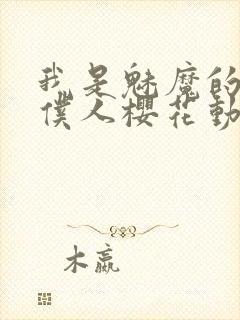 我是魅魔的
僕人櫻花動
木嬴